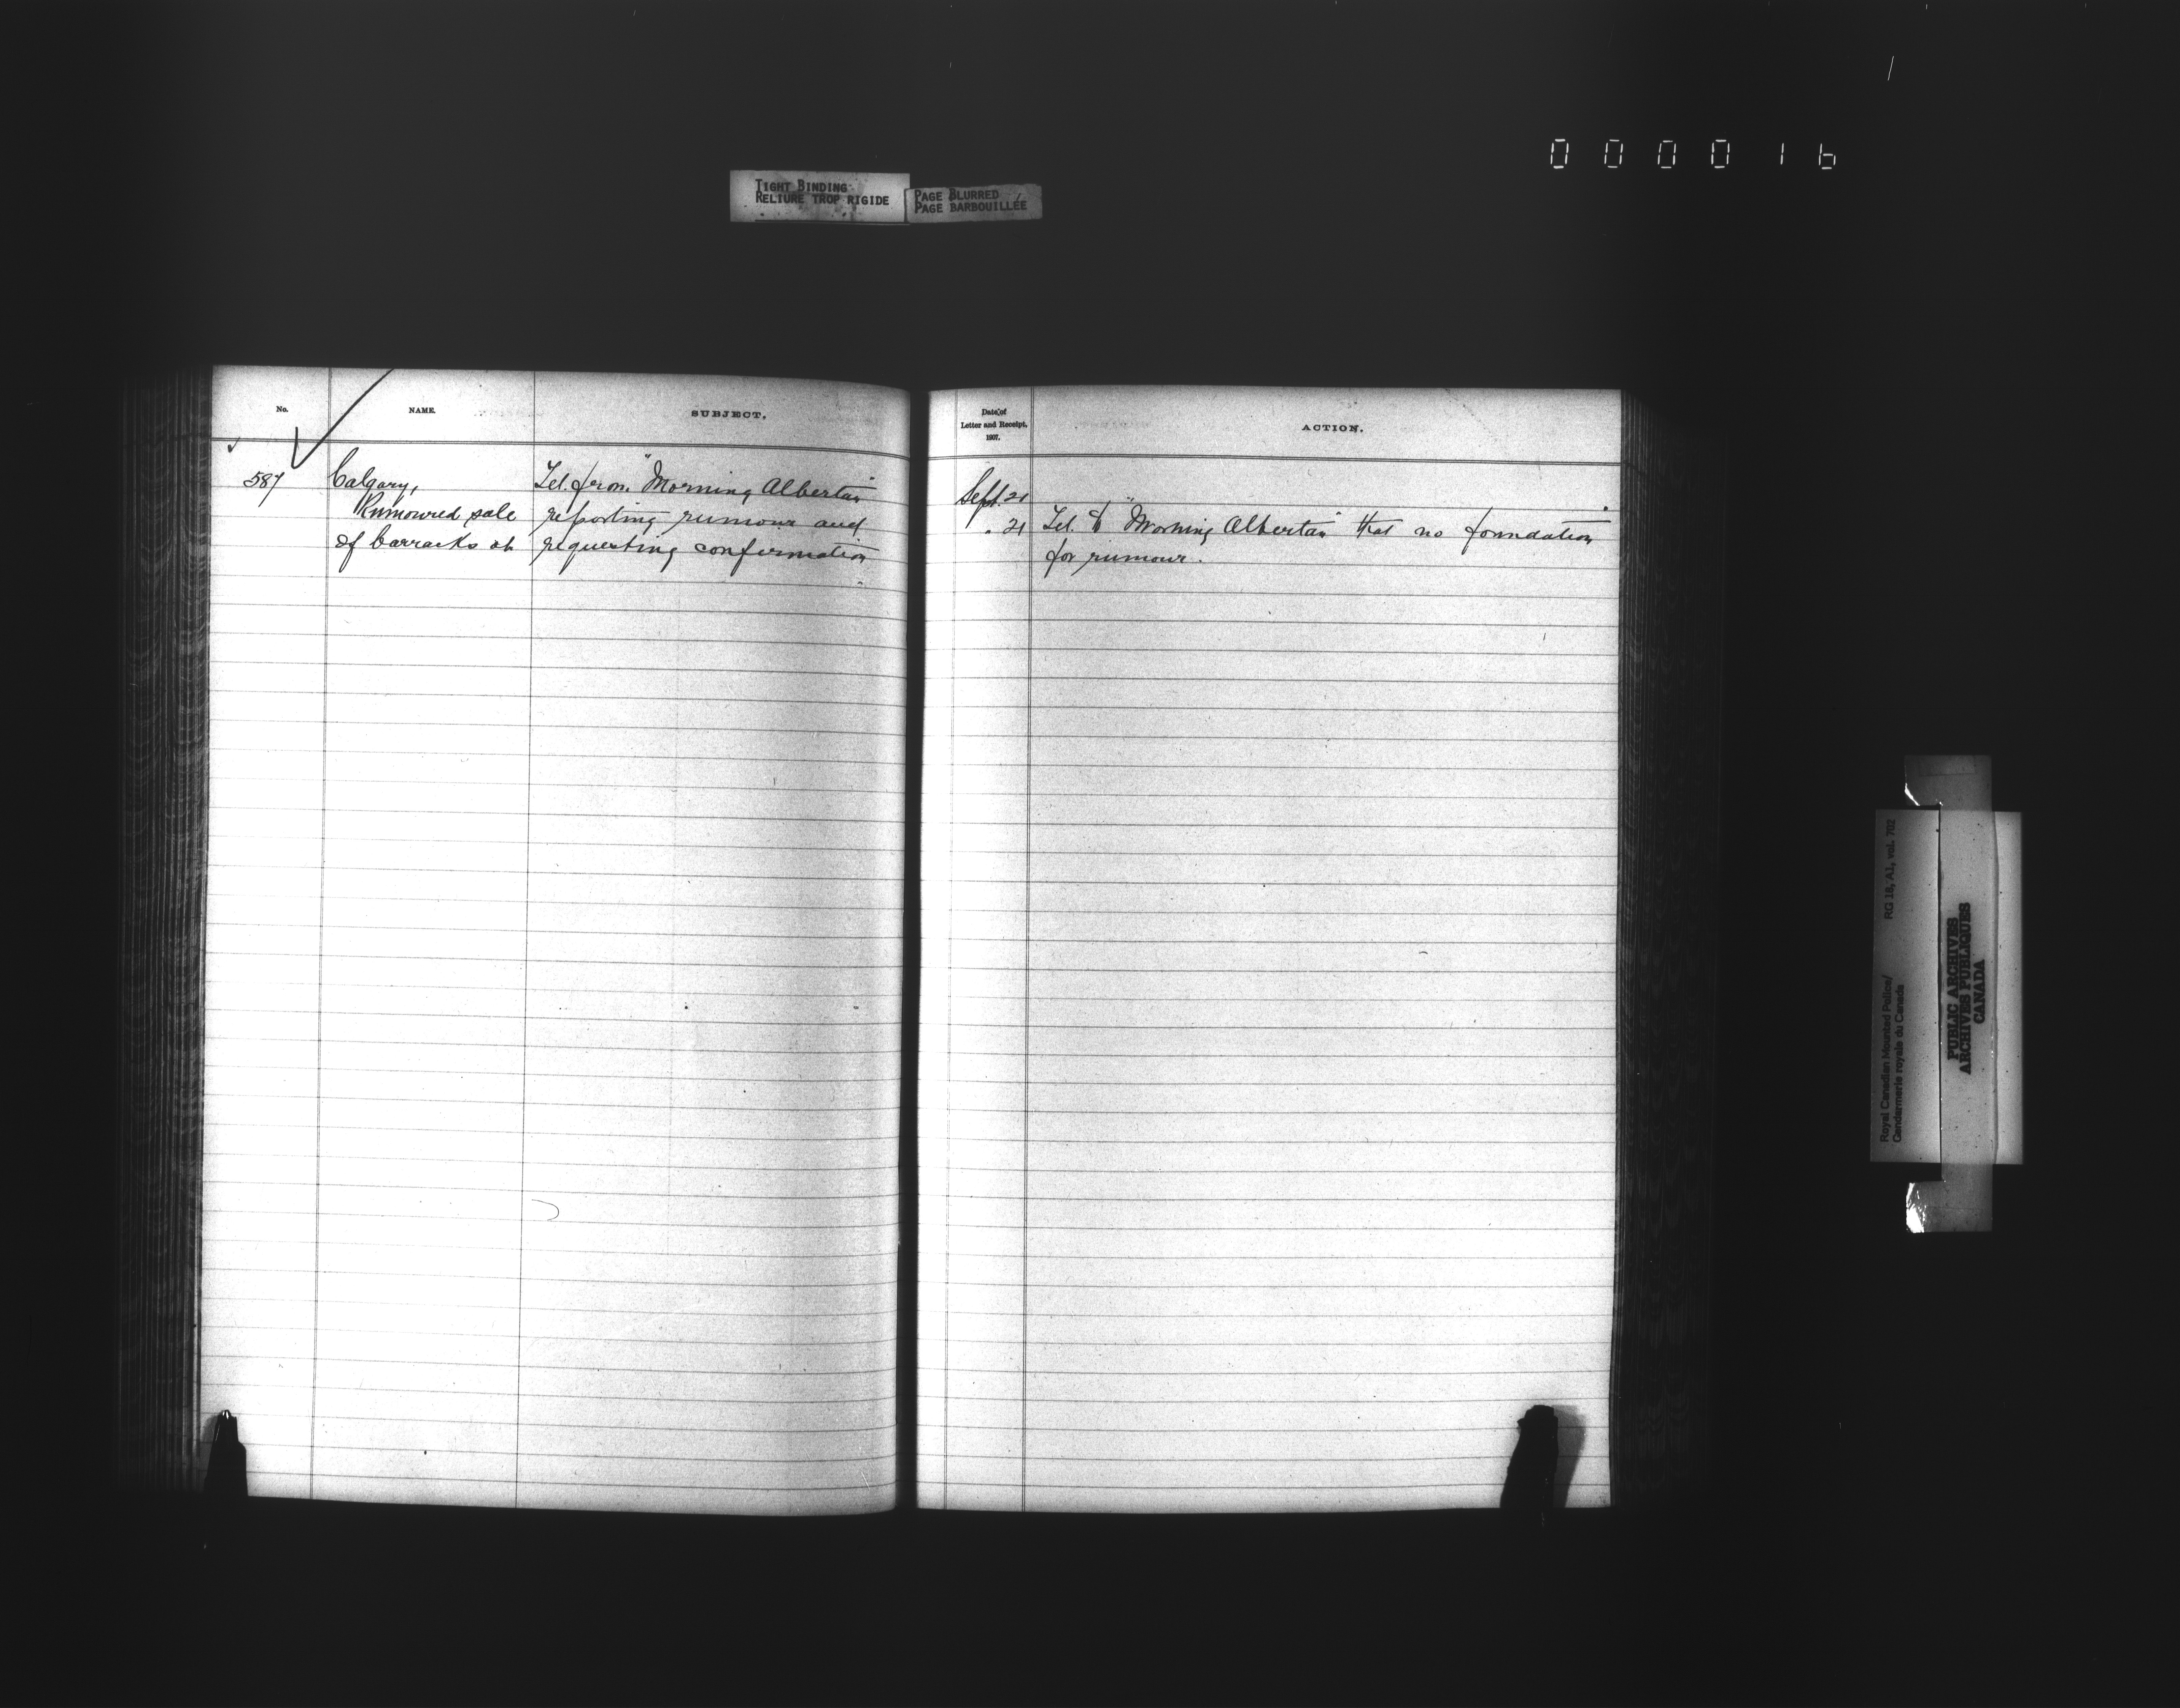 0 0 0 0 1 6
TIGHT BINDING
RELIURE TROP RIGIDE
PAGE BLURRED
PAGE BARBOUILLÉE
No.
NAME.
SUBJECT.
587
Calgary,
Rumoured sale
of barracks at
Tel. from "Morning Albertan"
reporting rumour and
requesting confirmation
Date of
Letter and Receipt,
1907.
ACTION.
Sept. 21
" 21 Tel. to "Morning Albertan" that no foundation
for rumour.
Royal Canadian Mounted Police/ RG 18, A1, vol. 702
Gendarmerie royale du Canada
PUBLIC ARCHIVES
ARCHIVES PUBLIQUES
CANADA